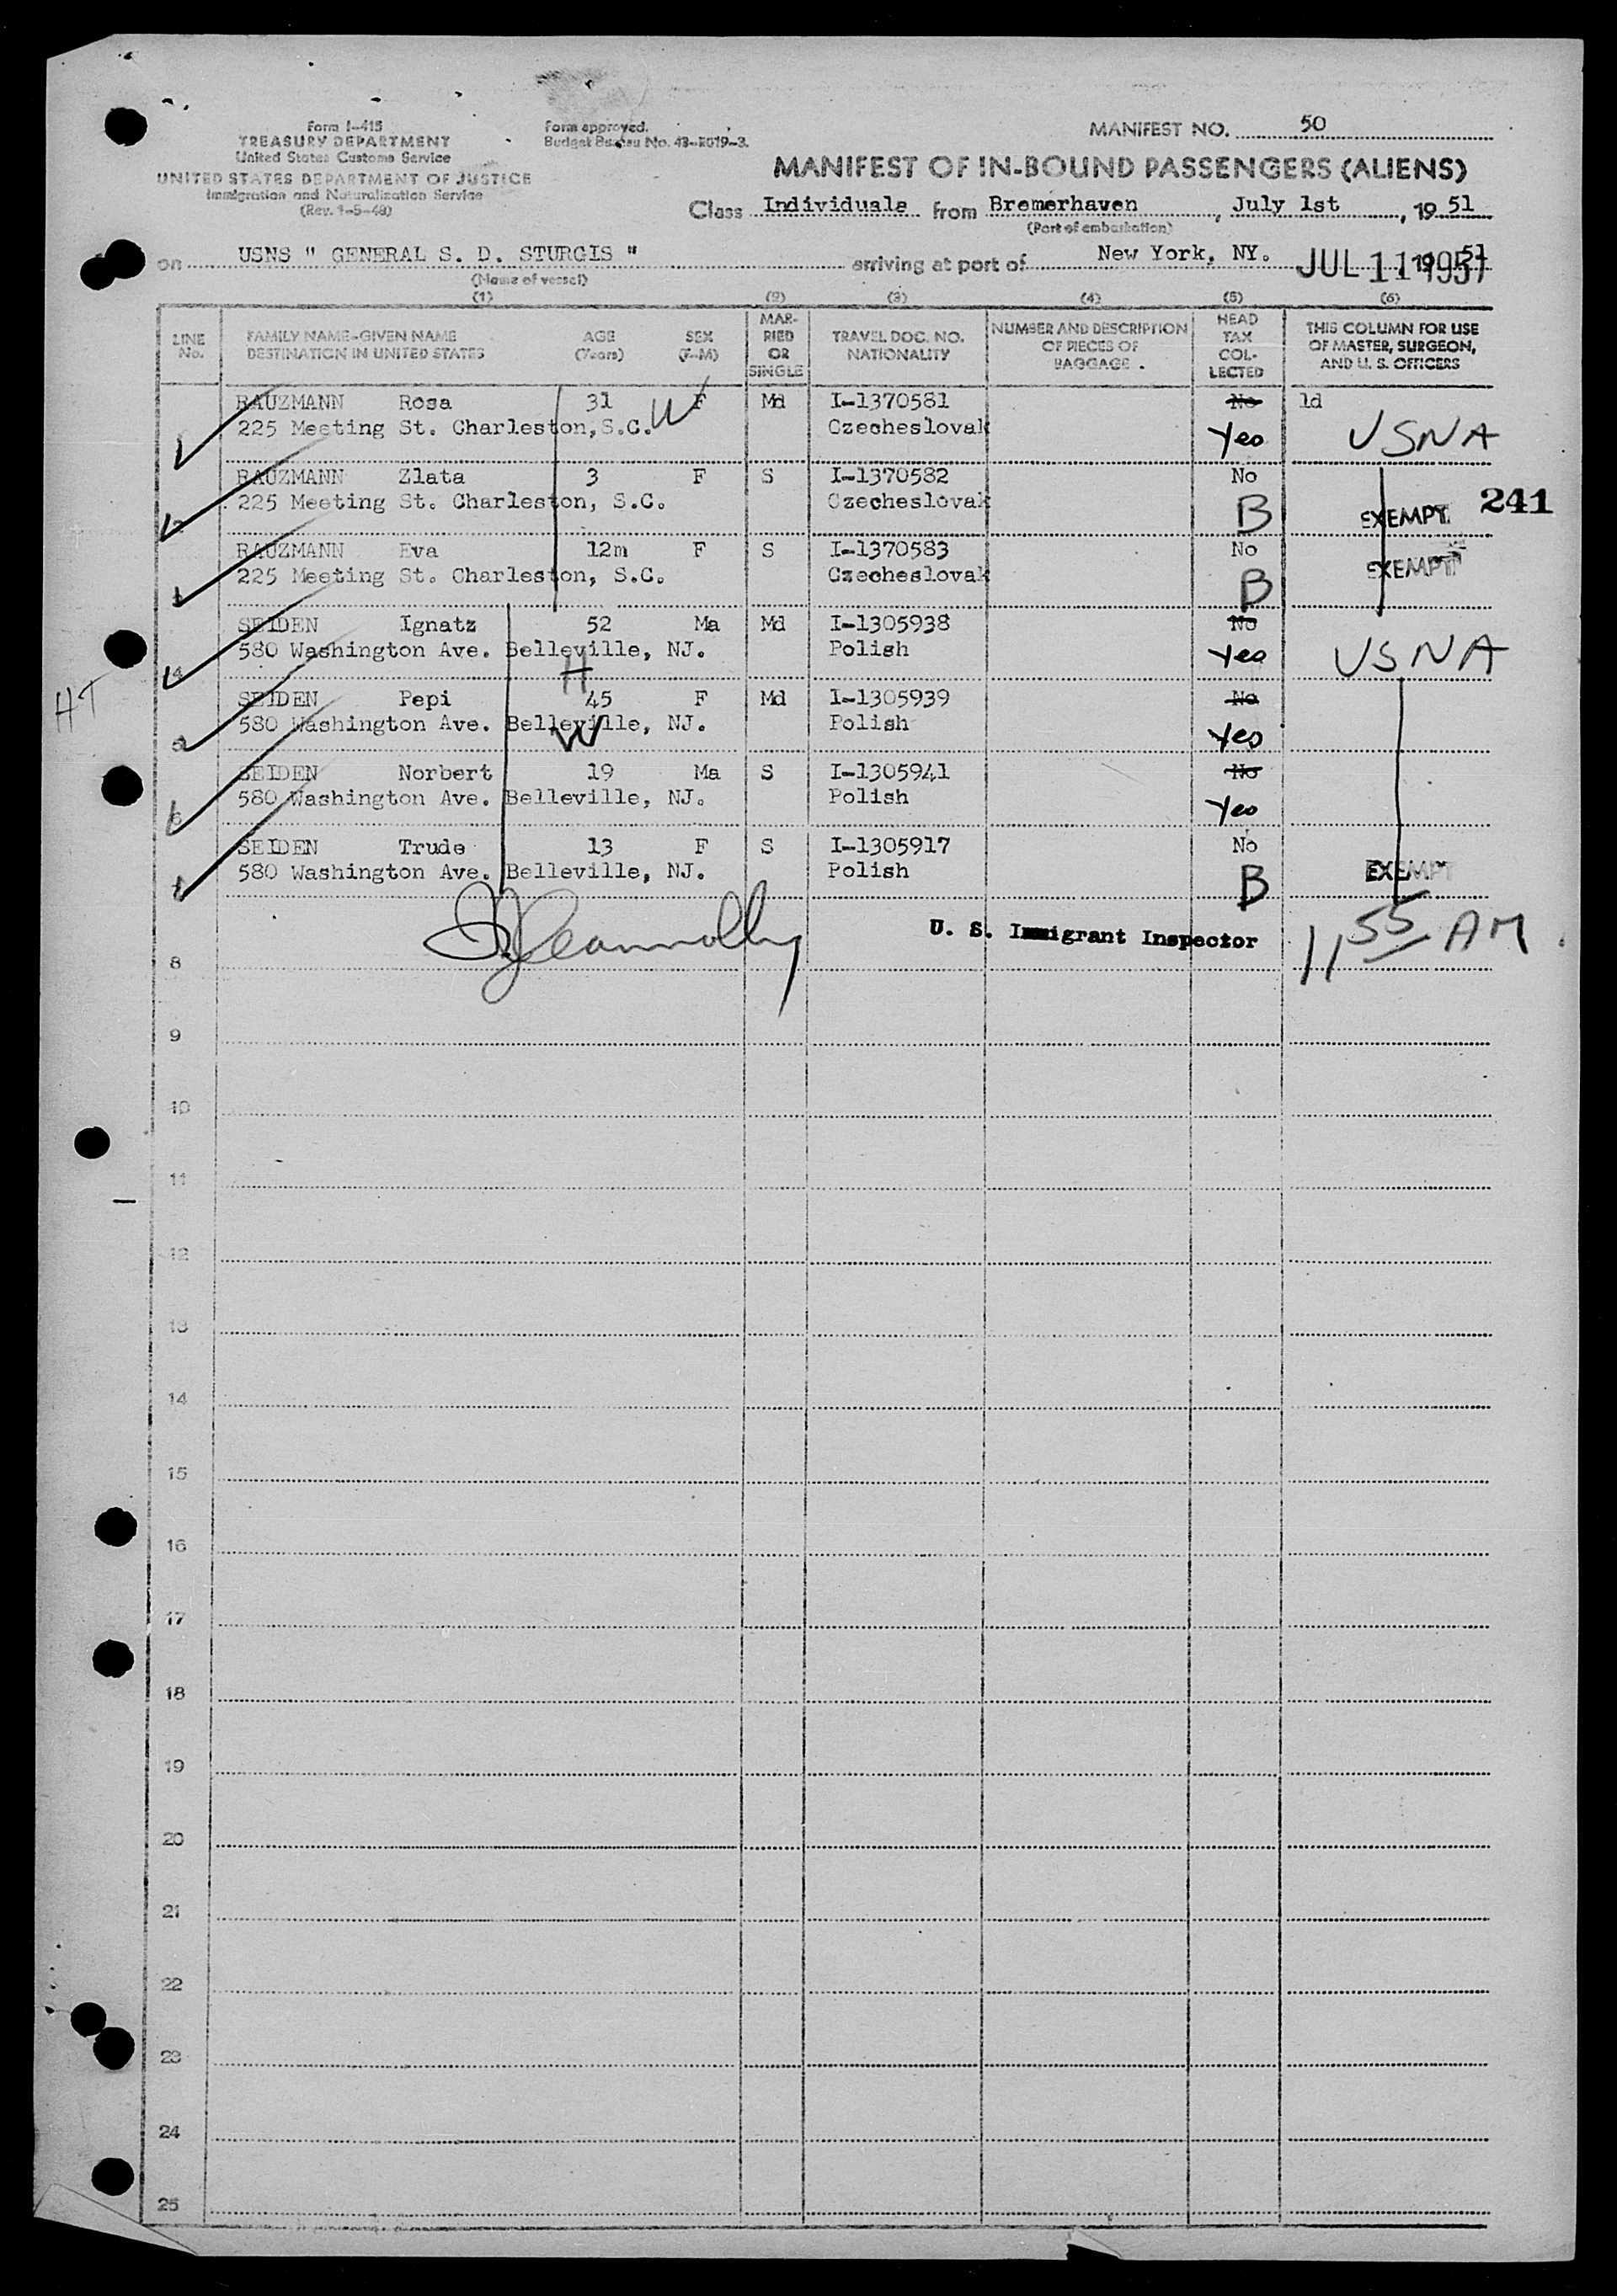 Form I-415
TREASURY DEPARTMENT
United States Customs Service
UNITED STATES DEPARTMENT OF JUSTICE
Immigration and Naturalization Service
(Rev. 1-5-48)
Form approved.
Budget Bureau No. 43-R019-3.
MANIFEST NO. 50
MANIFEST OF IN-BOUND PASSENGERS (ALIENS)
Class Individuals from Bremerhaven, July 1st, 19 51
(Port of embarkation)
on USNS " GENERAL S. D. STURGIS " arriving at port of New York, NY. JUL 11 1951, 19 51
(Name of vessel)
(1) (2) (3) (4) (5) (6)
LINE No.
FAMILY NAME-GIVEN NAME
DESTINATION IN UNITED STATES
AGE (Years)
SEX (F-M)
MAR-
RIED
OR
SINGLE
TRAVEL DOC. NO.
NATIONALITY
NUMBER AND DESCRIPTION
OF PIECES OF
BAGGAGE
HEAD
TAX
COL-
LECTED
THIS COLUMN FOR USE
OF MASTER, SURGEON,
AND U. S. OFFICERS
RAUZMANN Rosa 31 W F Md I-1370581 No ld
225 Meeting St. Charleston, S.C. Czecheslovak Yes USNA
RAUZMANN Zlata 3 F S I-1370582 No
225 Meeting St. Charleston, S.C. Czecheslovak B EXEMPT 241
RAUZMANN Eva 12m F S I-1370583 No
225 Meeting St. Charleston, S.C. Czecheslovak B EXEMPT
SEIDEN Ignatz 52 Ma Md I-1305938 No
580 Washington Ave. Belleville, NJ. H Polish Yes USNA
HT
SEIDEN Pepi 45 F Md I-1305939 No
580 Washington Ave. Belleville, NJ. W Polish Yes
SEIDEN Norbert 19 Ma S I-1305941 No
580 Washington Ave. Belleville, NJ. Polish Yes
SEIDEN Trude 13 F S I-1305917 No
580 Washington Ave. Belleville, NJ. Polish B EXEMPT
U. S. Immigrant Inspector 11 55 AM
8
9
10
11
12
13
14
15
16
17
18
19
20
21
22
23
24
25